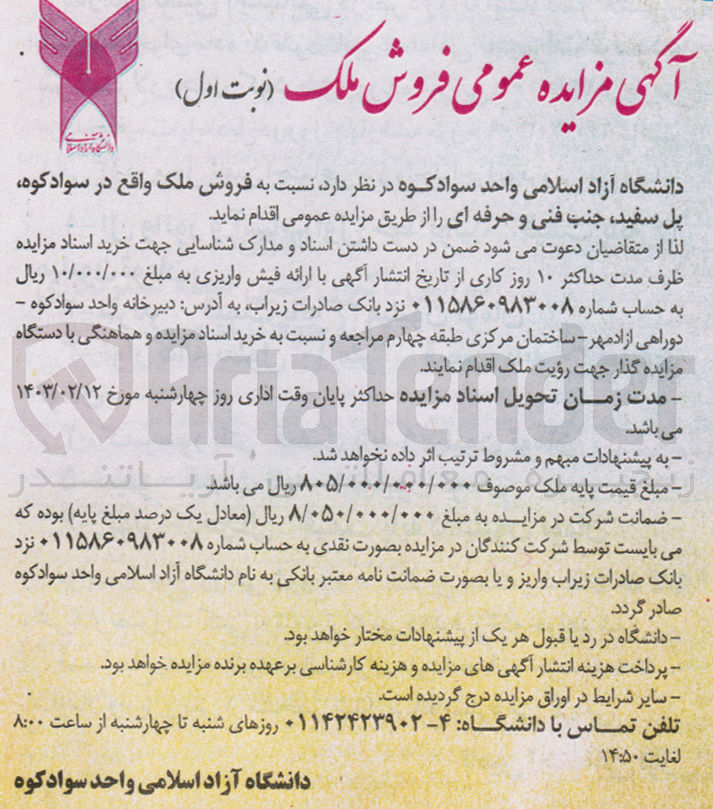 دانشگاه آزاد اسلامی
آگهی مزایده عمومی فروش ملک (نوبت اول)
دانشگاه آزاد اسلامی واحد سوادکوه در نظر دارد، نسبت به فروش ملک واقع در سوادکوه،
پل سفید، جنب فنی و حرفه ای را از طریق مزایده عمومی اقدام نماید.
لذا از متقاضیان دعوت می شود ضمن در دست داشتن اسناد و مدارک شناسایی جهت خرید اسناد مزایده
ظرف مدت حداکثر ۱۰ روز کاری از تاریخ انتشار آگهی با ارائه فیش واریزی به مبلغ ۱۰/۰۰۰/۰۰۰ ریال
به حساب شماره ۰۱۱۵۸۶۰۹۸۳۰۰۸ نزد بانک صادرات زیراب، به آدرس: دبیرخانه واحد سوادکوه –
دوراهی ازادمهر – ساختمان مرکزی طبقه چهارم مراجعه و نسبت به خرید اسناد مزایده و هماهنگی با دستگاه
مزایده گذار جهت رؤیت ملک اقدام نمایند.
– مدت زمان تحویل اسناد مزایده حداکثر پایان وقت اداری روز چهارشنبه مورخ ۱۴۰۳/۰۲/۱۲
می باشد.
– به پیشنهادات مبهم و مشروط ترتیب اثر داده نخواهد شد.
– مبلغ قیمت پایه ملک موصوف ۸۰۵/۰۰۰/۰۰۰/۰۰۰ ریال می باشد.
– ضمانت شرکت در مزایده به مبلغ ۸/۰۵۰/۰۰۰/۰۰۰ ریال (معادل یک درصد مبلغ پایه) بوده که
می بایست توسط شرکت کنندگان در مزایده بصورت نقدی به حساب شماره ۰۱۱۵۸۶۰۹۸۳۰۰۸ نزد
بانک صادرات زیراب واریز و یا بصورت ضمانت نامه معتبر بانکی به نام دانشگاه آزاد اسلامی واحد سوادکوه
صادر گردد.
– دانشگاه در رد یا قبول هر یک از پیشنهادات مختار خواهد بود.
– پرداخت هزینه انتشار آگهی های مزایده و هزینه کارشناسی برعهده برنده مزایده خواهد بود.
– سایر شرایط در اوراق مزایده درج گردیده است.
تلفن تماس با دانشگاه: ۴–۰۱۱۴۲۴۲۳۹۰۲ روزهای شنبه تا چهارشنبه از ساعت ۸:۰۰
لغایت ۱۴:۵۰
دانشگاه آزاد اسلامی واحد سوادکوه
AriaTender
زنجیره معاملاتی آریاتندر